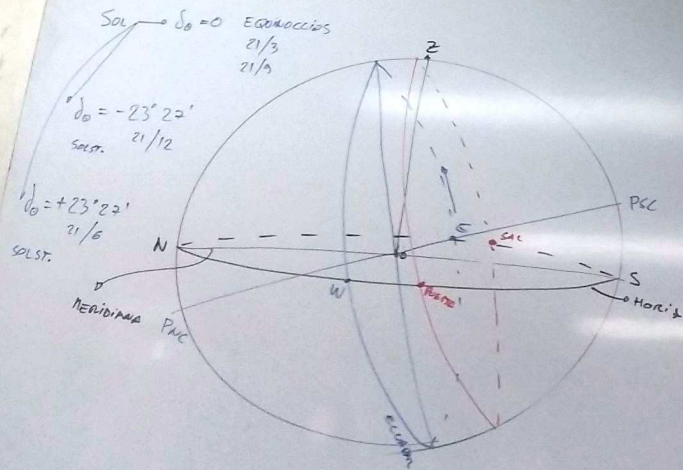 SOL → δ☉ = 0 EQUINOCCIOS
21/3
21/9
δ☉ = -23°27'
SOLST. 21/12
δ☉ = +23°27'
21/6
SOLST.
Z
PSC
E
SAL
N
S
W
HORIZ
MERIDIANA
PNC
ECUADOR